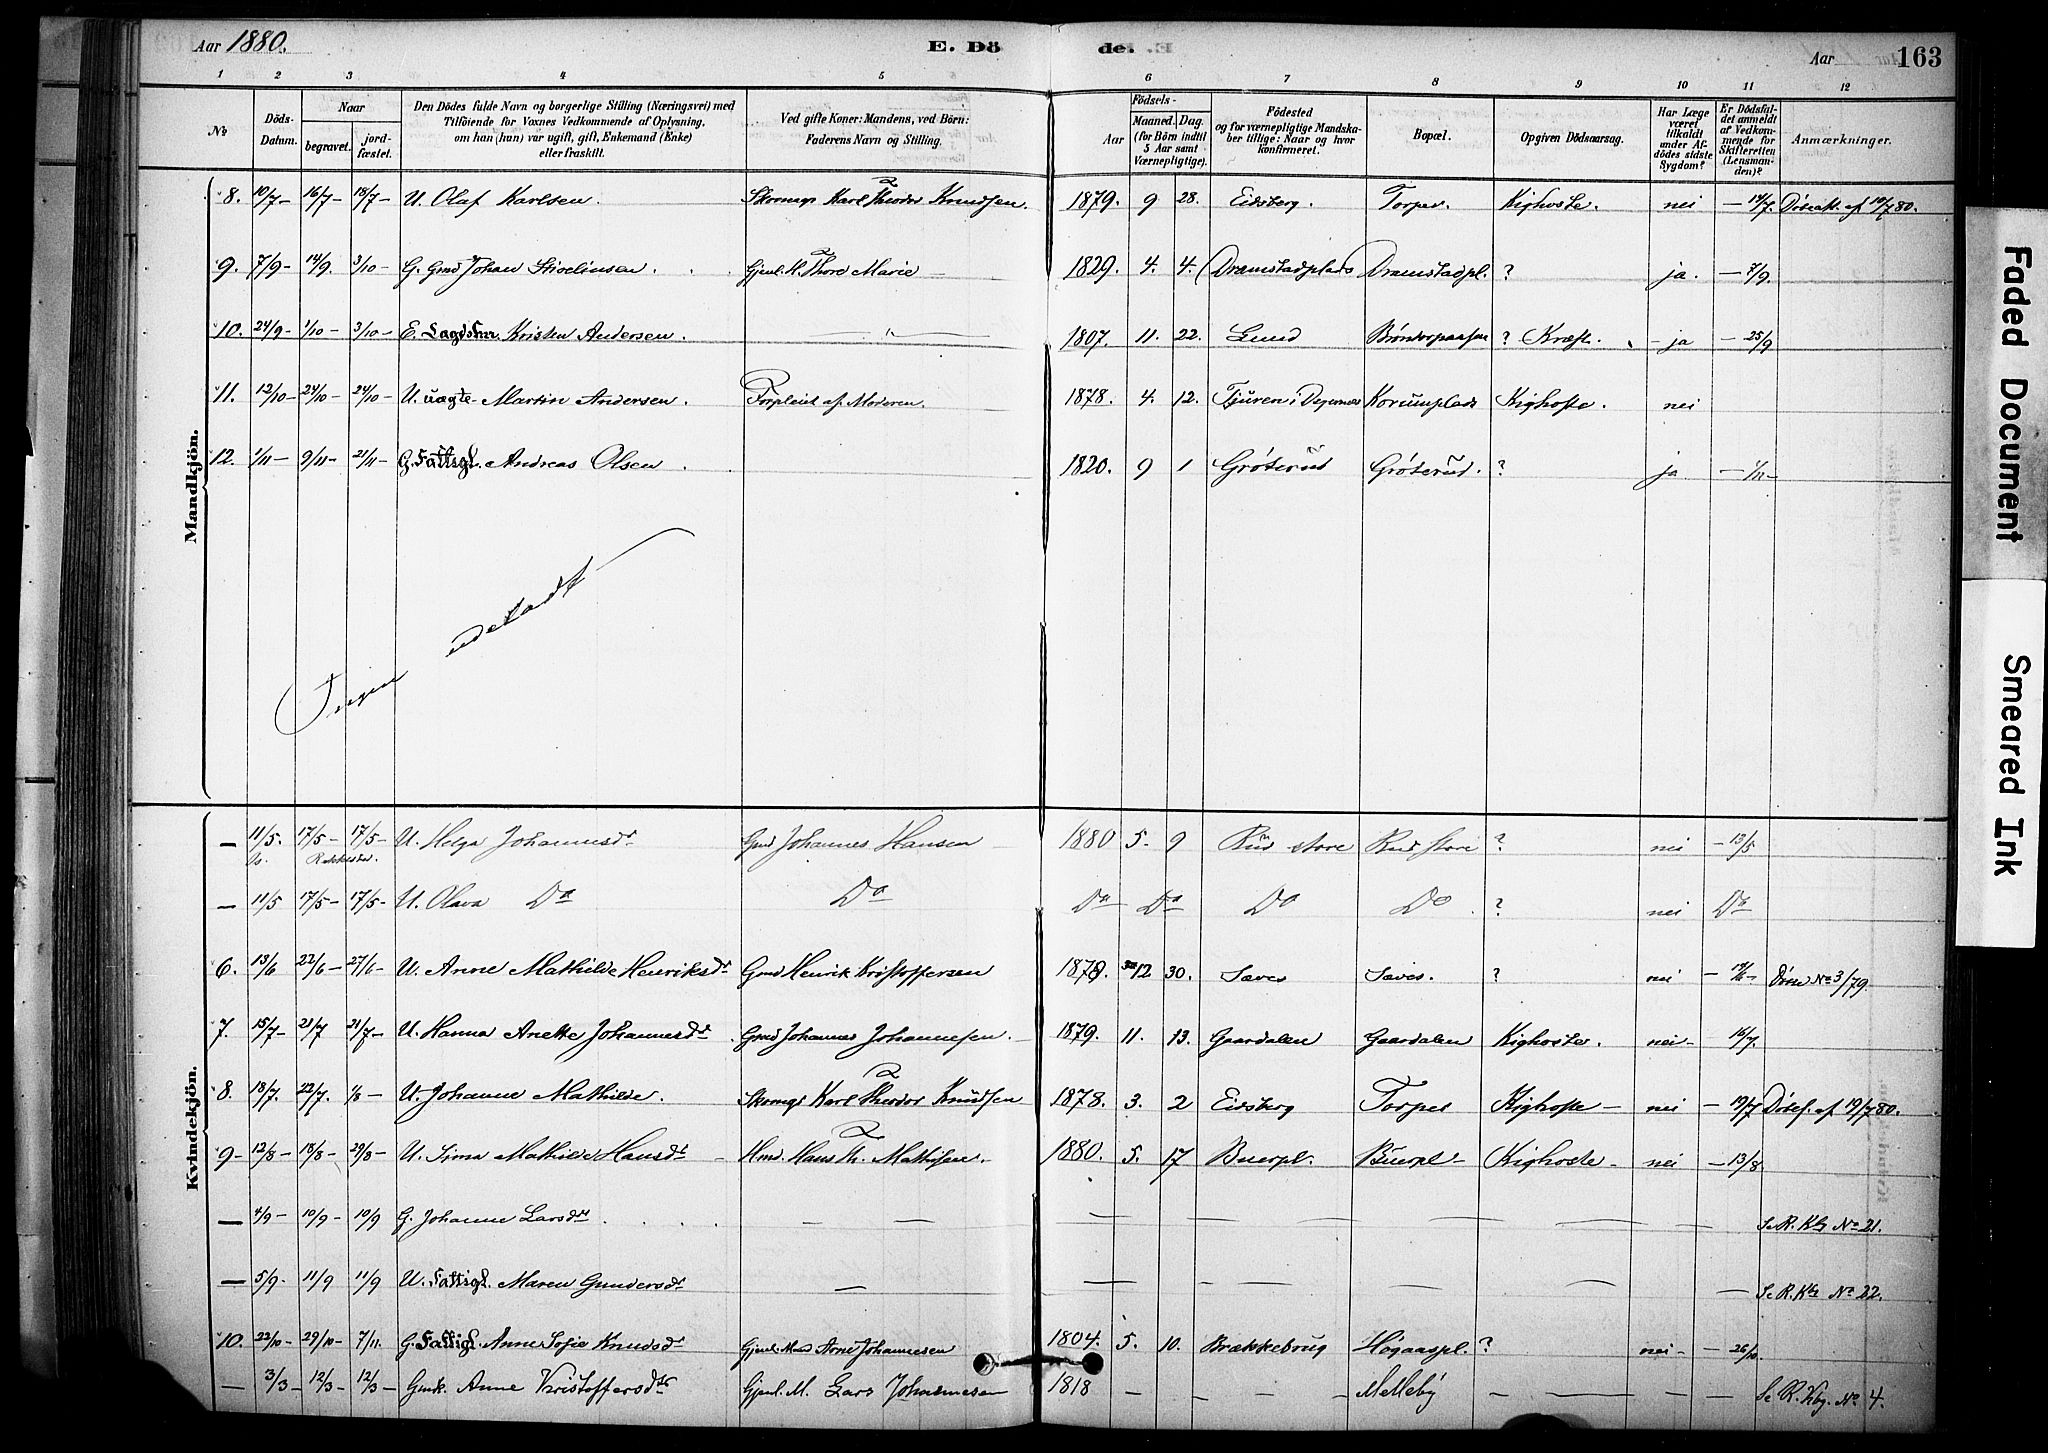 Aar 1880. E. Döde. Aar 163
1 2 3 4 5 6 7 8 9 10 11 12
No. Döds-Datum. Naar begravet. jord-fæstet. Den Dödes fulde Navn og borgerlige Stilling (Næringsvei) med Tilföiende for Voxnes Vedkommende af Oplysning, om han (hun) var ugift, gift, Enkemand (Enke) eller fraskilt. Ved gifte Koner: Mandens, ved Börn: Faderens Navn og Stilling. Födsels- Aar Maaned. Dag. (for Börn indtil 5 Aar samt Værnepligtige). Födested og for værnepligtige Mandska-ber tillige: Naar og hvor konfirmeret. Bopæl. Opgiven Dödsaarsag. Har Læge været tilkaldt under Af-dödes sidste Sygdom? Er Dödsfal-det anmeldt af Vedkom-mende for Skifteretten (Lensman-den)? Anmærkninger.
Mandkjön.
8. 10/7 – 16/7 – 18/7 – U. Olaf Karlsen. Karl Theodor Knudsen. 1879. 9 28. Eidsberg. Torper. Kighoste. nei – 14/7. Dödsatt. af 10/7 80.
9. 7/9 – 14/9. 3/10 – G. Gmd Johan . . Gjenl. H. Thore Marie – 1829. 4. 4. (Dramstadplads Dramstadpl. ? ja. – 7/9.
10. 24/9 – 1/10 – 3/10 – E. Lagdslm. Kristen Andersen. – " – 1807. 11. 22. Lund ? Kræft. – ja – 25/9
11. 12/10 – 24/10 – 24/10 – U. uægte Martin Andersen. Forpleiet af Moderen. 1878. 4. 12. Tjuren i Degernes Korumplads Kighoste. nei
12. 1/11 – 9/11 – 21/11 – G. Fattigl. Andreas Olsen . 1820. 9 1 Gröterud Gröterud. ? ja – 1/11 –
Ingen udeladt
Kvindekjön.
– 11/5. 17/5 – 17/5 – U. Helga Johannesdr Gmd Johannes Hansen 1880 5. 9 Rud store Rud store ? nei – 13/5
Rakkestad.
– 11/5 17/5 – 17/5 – U. Olava Do Do Do Do Do Do . ? nei Do
6. 13/6 22/6 – 27/6 – U. Anne Mathilde Henriksdr Gmd Henrik Kristoffersen 1878. 12 30. Sæves Sæves. ? nei – 14/6 – No 3/79.
7. 15/7 – 21/7 21/7 – U. Hanna Anette Johannesdr. Gmd Johannes Johannesen. 1879. 11. 13. Gaardalen Gaardalen Kighoste. nei – 16/7.
8. 18/7. 22/7. 1/8 – U. Johanne Mathilde. Karl Theodor Knudsen 1878. 3. 2 Eidsberg Torper Kighoste – nei – 19/7 Dödsf. af 19/7 80.
9 – 12/8 – 18/8 – 29/8 – U. Sina Mathilde Hansdr – Hmd. Hans Th. Mathisen. 1880. 5. 17 Buerpl. Buerpl – Kighoste – nei – 13/8
– 4/9 – 10/9 – 10/9 G. Johanne Larsdr. . . . – – – – – – – – – – Se R. Kbg No 21.
– 5/9 – 11/9 11/9 U. Fattigl. Maren Gundersdr – – – – – – – – Se R. Kbg No 22.
10. 22/10 – 29/10 – 7/11. G. Fattigl. Anne Sofie Knudsdr Gjenl. Mand Arne Johannesen 1804. 5. 10. Brækkebrug Högaaspl. ? nei – – 26/10
– 3/3 – 12/3 – 12/3 – Gmdk. Anne Kristoffersdtr Gjenl. M. Lars Johannesen 1818 – – – Melleby – – – – Se R. Kbg. No 4.
Faded Document
Smeared Ink